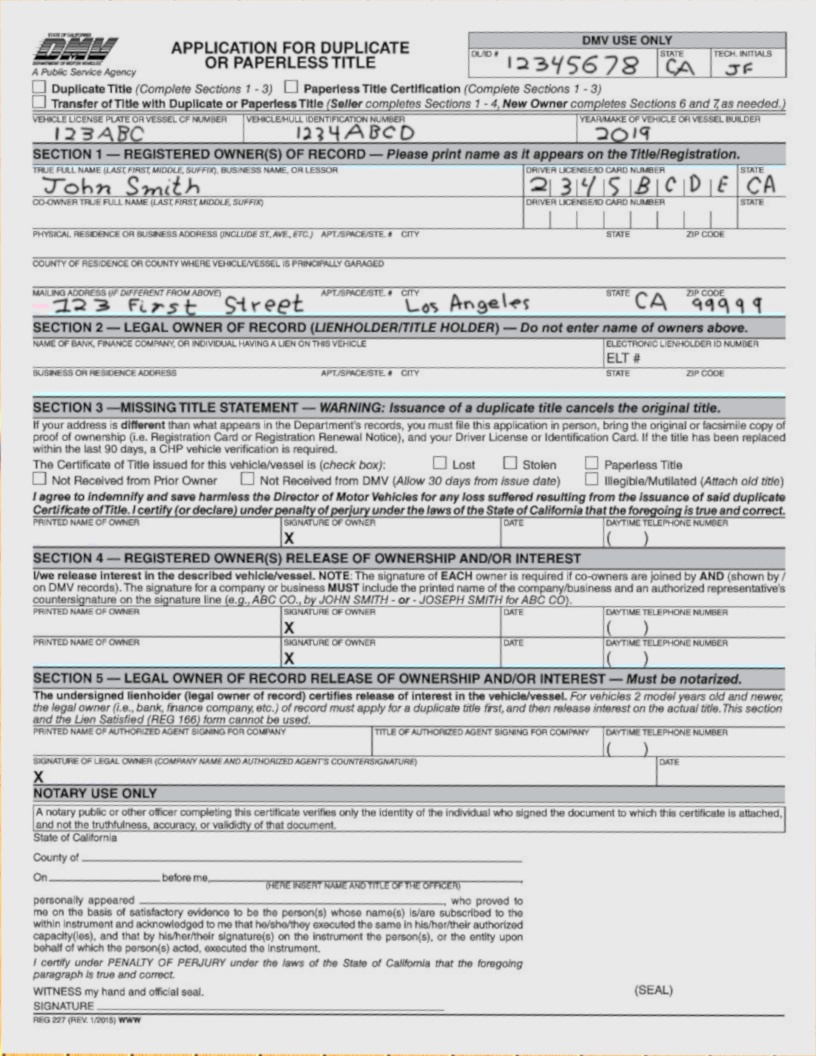 STATE OF CALIFORNIA
DMV
DEPARTMENT OF MOTOR VEHICLES
A Public Service Agency
APPLICATION FOR DUPLICATE
OR PAPERLESS TITLE
DMV USE ONLY
DL/ID # STATE TECH. INITIALS
12345678 CA JF
Duplicate Title (Complete Sections 1 - 3) Paperless Title Certification (Complete Sections 1 - 3)
Transfer of Title with Duplicate or Paperless Title (Seller completes Sections 1 - 4, New Owner completes Sections 6 and 7, as needed.)
VEHICLE LICENSE PLATE OR VESSEL CF NUMBER VEHICLE/HULL IDENTIFICATION NUMBER YEAR/MAKE OF VEHICLE OR VESSEL BUILDER
123ABC 1234ABCD 2019
SECTION 1 — REGISTERED OWNER(S) OF RECORD — Please print name as it appears on the Title/Registration.
TRUE FULL NAME (LAST, FIRST, MIDDLE, SUFFIX), BUSINESS NAME, OR LESSOR DRIVER LICENSE/ID CARD NUMBER STATE
John Smith 2 3 4 5 B C D E CA
CO-OWNER TRUE FULL NAME (LAST, FIRST, MIDDLE, SUFFIX) DRIVER LICENSE/ID CARD NUMBER STATE
PHYSICAL RESIDENCE OR BUSINESS ADDRESS (INCLUDE ST., AVE., ETC.) APT./SPACE/STE. # CITY STATE ZIP CODE
COUNTY OF RESIDENCE OR COUNTY WHERE VEHICLE/VESSEL IS PRINCIPALLY GARAGED
MAILING ADDRESS (IF DIFFERENT FROM ABOVE) APT./SPACE/STE. # CITY STATE ZIP CODE
123 First Street Los Angeles CA 99999
SECTION 2 — LEGAL OWNER OF RECORD (LIENHOLDER/TITLE HOLDER) — Do not enter name of owners above.
NAME OF BANK, FINANCE COMPANY, OR INDIVIDUAL HAVING A LIEN ON THIS VEHICLE ELECTRONIC LIENHOLDER ID NUMBER
ELT #
BUSINESS OR RESIDENCE ADDRESS APT./SPACE/STE. # CITY STATE ZIP CODE
SECTION 3 —MISSING TITLE STATEMENT — WARNING: Issuance of a duplicate title cancels the original title.
If your address is different than what appears in the Department's records, you must file this application in person, bring the original or facsimile copy of
proof of ownership (i.e. Registration Card or Registration Renewal Notice), and your Driver License or Identification Card. If the title has been replaced
within the last 90 days, a CHP vehicle verification is required.
The Certificate of Title issued for this vehicle/vessel is (check box): Lost Stolen Paperless Title
Not Received from Prior Owner Not Received from DMV (Allow 30 days from issue date) Illegible/Mutilated (Attach old title)
I agree to indemnify and save harmless the Director of Motor Vehicles for any loss suffered resulting from the issuance of said duplicate
Certificate of Title. I certify (or declare) under penalty of perjury under the laws of the State of California that the foregoing is true and correct.
PRINTED NAME OF OWNER SIGNATURE OF OWNER DATE DAYTIME TELEPHONE NUMBER
X ( )
SECTION 4 — REGISTERED OWNER(S) RELEASE OF OWNERSHIP AND/OR INTEREST
I/we release interest in the described vehicle/vessel. NOTE: The signature of EACH owner is required if co-owners are joined by AND (shown by /
on DMV records). The signature for a company or business MUST include the printed name of the company/business and an authorized representative's
countersignature on the signature line (e.g., ABC CO., by JOHN SMITH - or - JOSEPH SMITH for ABC CO).
PRINTED NAME OF OWNER SIGNATURE OF OWNER DATE DAYTIME TELEPHONE NUMBER
X ( )
PRINTED NAME OF OWNER SIGNATURE OF OWNER DATE DAYTIME TELEPHONE NUMBER
X ( )
SECTION 5 — LEGAL OWNER OF RECORD RELEASE OF OWNERSHIP AND/OR INTEREST — Must be notarized.
The undersigned lienholder (legal owner of record) certifies release of interest in the vehicle/vessel. For vehicles 2 model years old and newer,
the legal owner (i.e., bank, finance company, etc.) of record must apply for a duplicate title first, and then release interest on the actual title. This section
and the Lien Satisfied (REG 166) form cannot be used.
PRINTED NAME OF AUTHORIZED AGENT SIGNING FOR COMPANY TITLE OF AUTHORIZED AGENT SIGNING FOR COMPANY DAYTIME TELEPHONE NUMBER
( )
SIGNATURE OF LEGAL OWNER (COMPANY NAME AND AUTHORIZED AGENT'S COUNTERSIGNATURE) DATE
X
NOTARY USE ONLY
A notary public or other officer completing this certificate verifies only the identity of the individual who signed the document to which this certificate is attached,
and not the truthfulness, accuracy, or validity of that document.
State of California
County of
On before me,
(HERE INSERT NAME AND TITLE OF THE OFFICER)
personally appeared , who proved to
me on the basis of satisfactory evidence to be the person(s) whose name(s) is/are subscribed to the
within instrument and acknowledged to me that he/she/they executed the same in his/her/their authorized
capacity(ies), and that by his/her/their signature(s) on the instrument the person(s), or the entity upon
behalf of which the person(s) acted, executed the instrument.
I certify under PENALTY OF PERJURY under the laws of the State of California that the foregoing
paragraph is true and correct.
WITNESS my hand and official seal. (SEAL)
SIGNATURE
REG 227 (REV. 1/2015) WWW